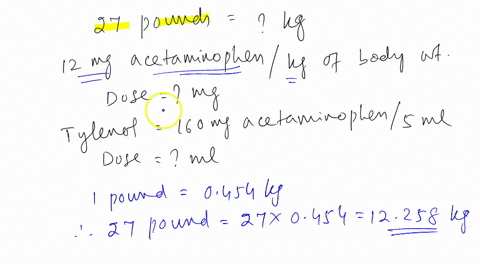 27 pounds = ? kg
12 mg acetaminophen / kg of body wt.
Dose = ? mg
Tylenol = 160 mg acetaminophen / 5 ml
Dose = ? ml
1 pound = 0.454 kg
∴ 27 pound = 27 × 0.454 = 12.258 kg